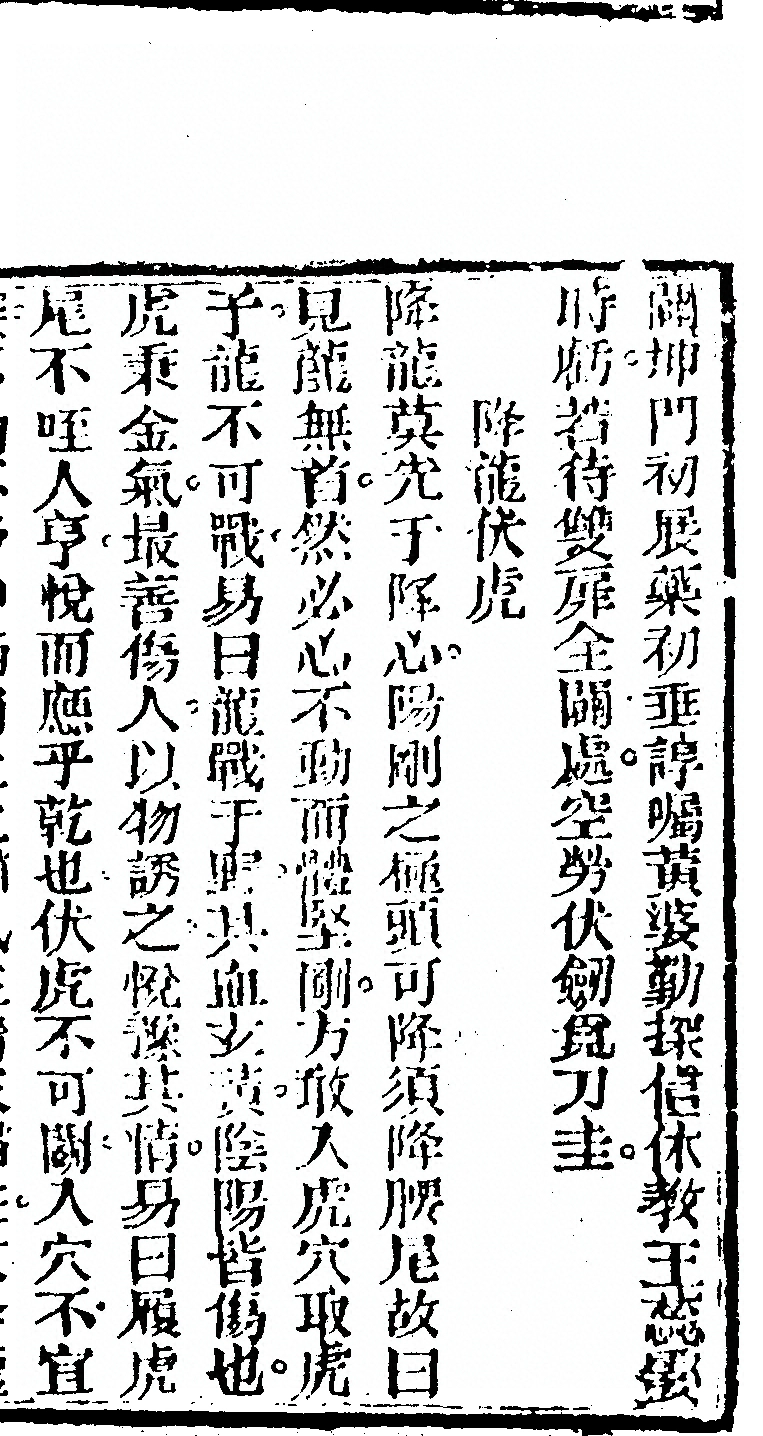 關坤門初展藥初垂諄囑黃婆勤採信休教王蕊蛩
時虧。若待雙扉全闢處。空勞伏劍覓刀圭。
降龍伏虎
降龍莫先于降心。陽剛之極頭可降須降腰尾故曰
見龍無首。然必心不動而體堅剛。方敢入虎穴取虎
子。龍不可戰。易曰龍戰于野。其血玄黃。陰陽皆傷也。
虎秉金氣。最善傷人。以物誘之。悅豫其情。易曰履虎
尾不咥人亨。悅而應乎乾也。伏虎不可鬭。入穴不宜